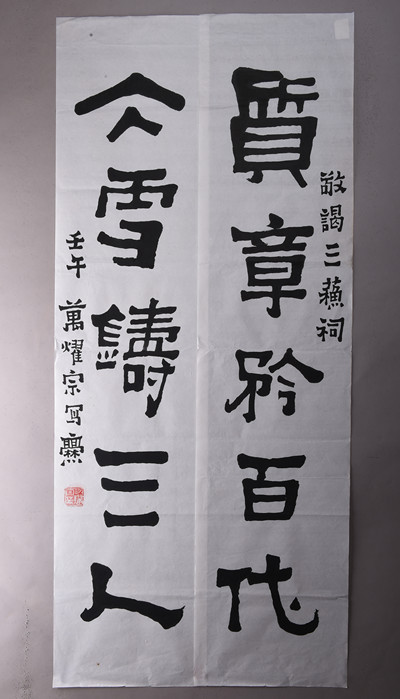 敬謁三蘇祠
質章矜百代
仌雪鑄三人
壬午 萬耀宗寫爨